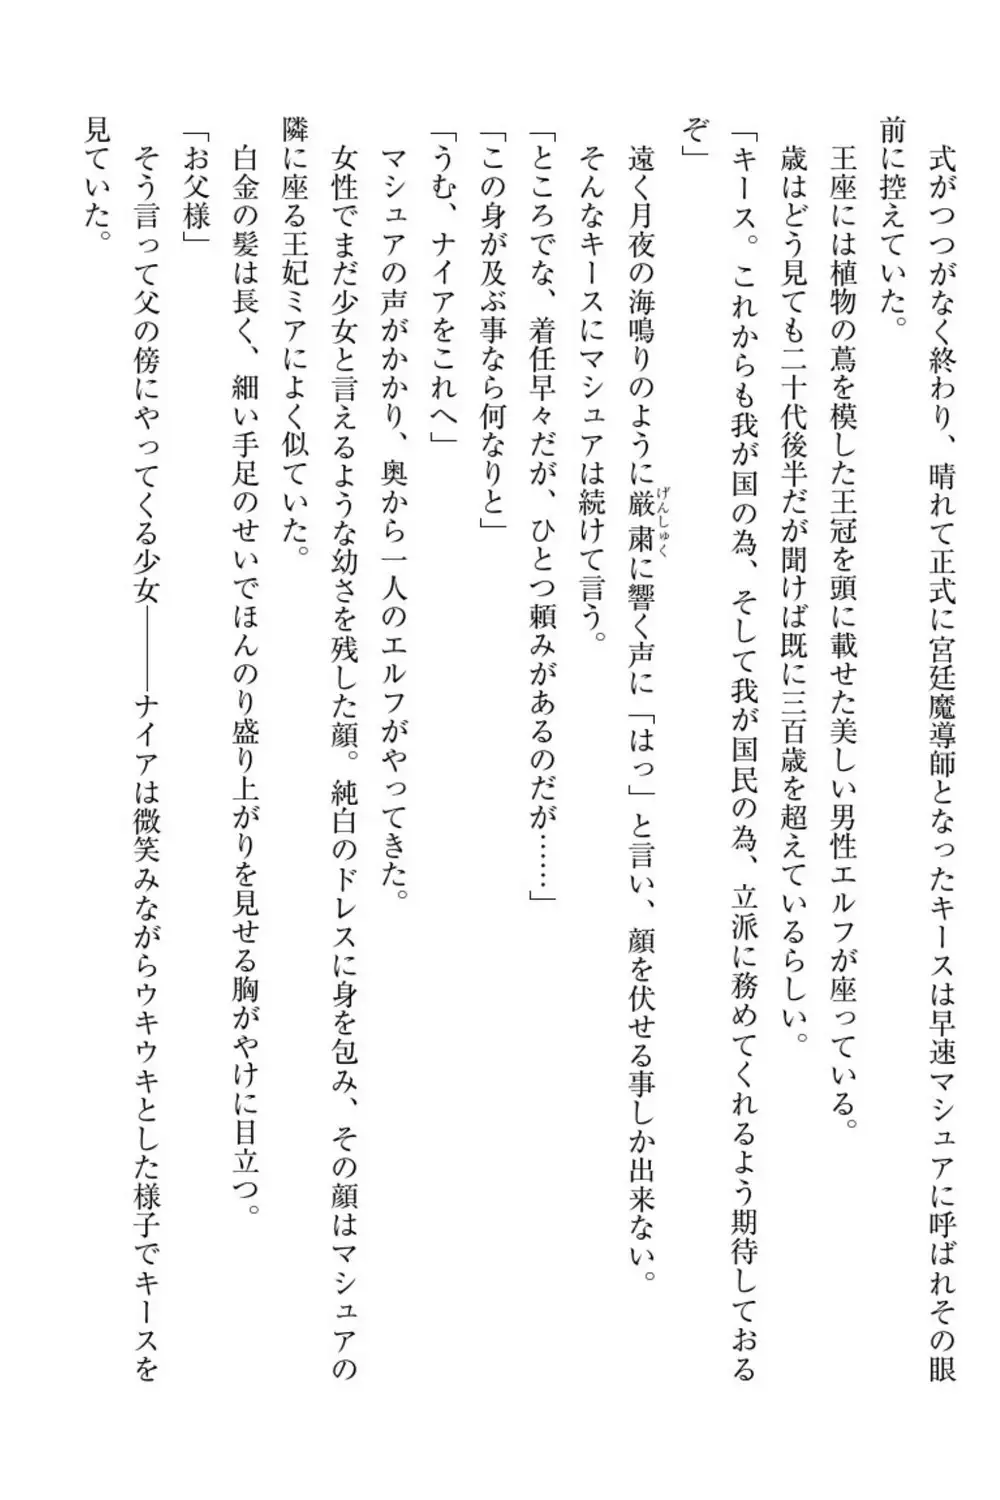 式がつつがなく終わり、晴れて正式に宮廷魔導師となったキースは早速マシュアに呼ばれその眼
前に控えていた。
王座には植物の蔦を模した王冠を頭に載せた美しい男性エルフが座っている。
歳はどう見ても二十代後半だが聞けば既に三百歳を超えているらしい。
「キース。これからも我が国の為、そして我が国民の為、立派に務めてくれるよう期待しておる
ぞ」
遠く月夜の海鳴りのように厳粛に響く声に「はっ」と言い、顔を伏せる事しか出来ない。
げんしゅく
そんなキースにマシュアは続けて言う。
「ところでな、着任早々だが、ひとつ頼みがあるのだが……」
「この身が及ぶ事なら何なりと」
「うむ、ナイアをこれへ」
マシュアの声がかかり、奥から一人のエルフがやってきた。
女性でまだ少女と言えるような幼さを残した顔。純白のドレスに身を包み、その顔はマシュアの
隣に座る王妃ミアによく似ていた。
白金の髪は長く、細い手足のせいでほんのり盛り上がりを見せる胸がやけに目立つ。
「お父様」
そう言って父の傍にやってくる少女――ナイアは微笑みながらウキウキとした様子でキースを
見ていた。